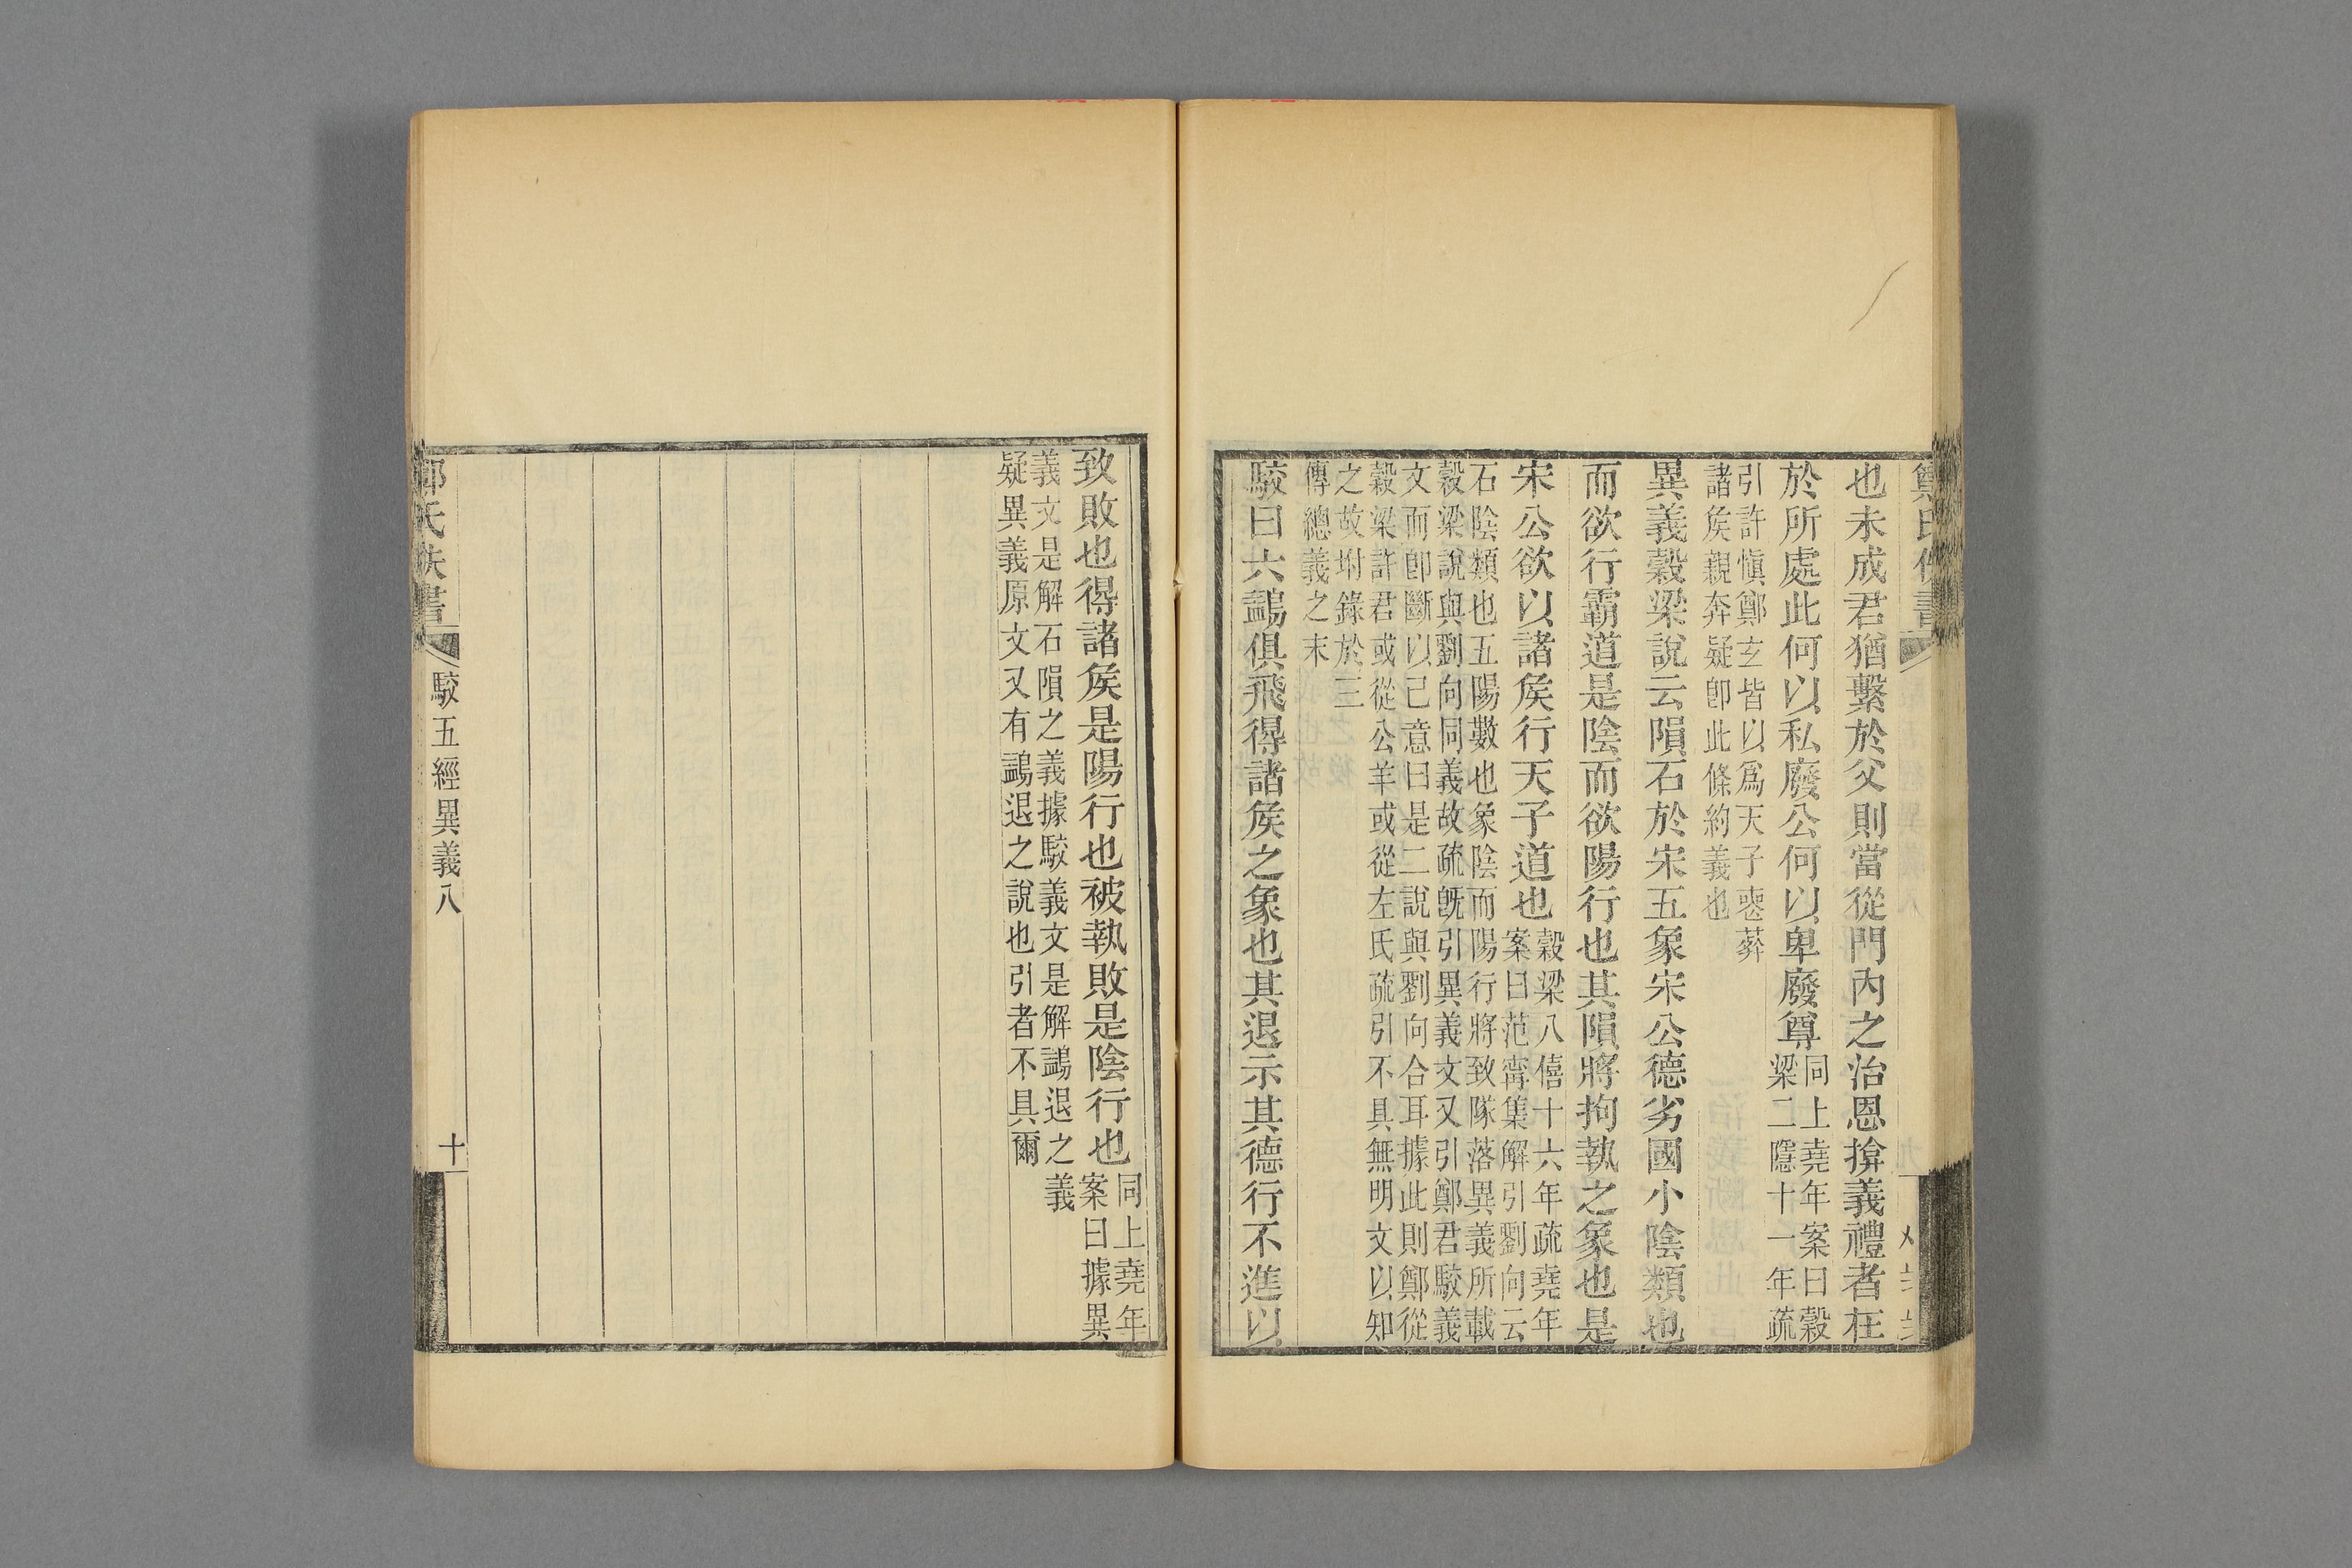 鄭氏佚書
也未成君猶繫於父則當從門內之治恩揜義禮者在
於所處此何以私廢公何以卑廢尊
同上堯年案曰穀
梁二隱十一年疏
引許愼鄭玄皆以爲天子喪葬
諸矦親奔疑卽此條約義也
異義穀梁說云隕石於宋五象宋公德劣國小陰類也
而欲行霸道是陰而欲陽行也其隕將拘執之象也是
宋公欲以諸矦行天子道也
穀梁八僖十六年疏堯年
案曰范寗集解引劉向云
石陰類也五陽數也象陰而陽行將致隊落異義所載
穀梁說與劉向同義故疏旣引異義文又引鄭君駮義
文而卽斷以己意曰是二說與劉向合耳據此則鄭從
穀梁許君或從公羊或從左氏疏引不具無明文以知
之故坿錄於三
傳總義之末
駮曰六鷁俱飛得諸矦之象也其退示其德行不進以
致敗也得諸矦是陽行也被執敗是陰行也
同上堯年
案曰據異
義文是解石隕之義據駮義文是解鷁退之義
疑異義原文又有鷁退之說也引者不具爾
鄭氏佚書
駮五經異義八
十